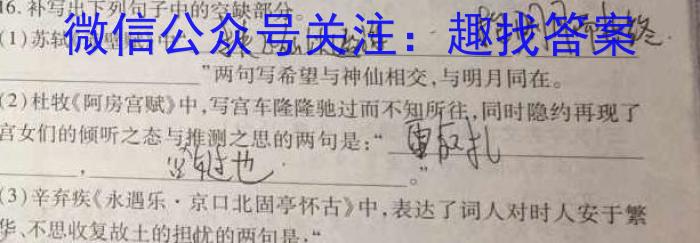 16. 补写出下列句子中的空缺部分。
微信公众号关注：趣找答案
(1)苏轼《
”两句写希望与神仙相交，与明月同在。
(2)杜牧《阿房宫赋》中，写宫车隆隆驰过而不知所往，同时隐约再现了
宫女们的倾听之态与推测之思的两句是：“
，
也
。”
(3)辛弃疾《永遇乐·京口北固亭怀古》中，表达了词人对时人安于繁
华、不思收复故土的担忧的两句是：“